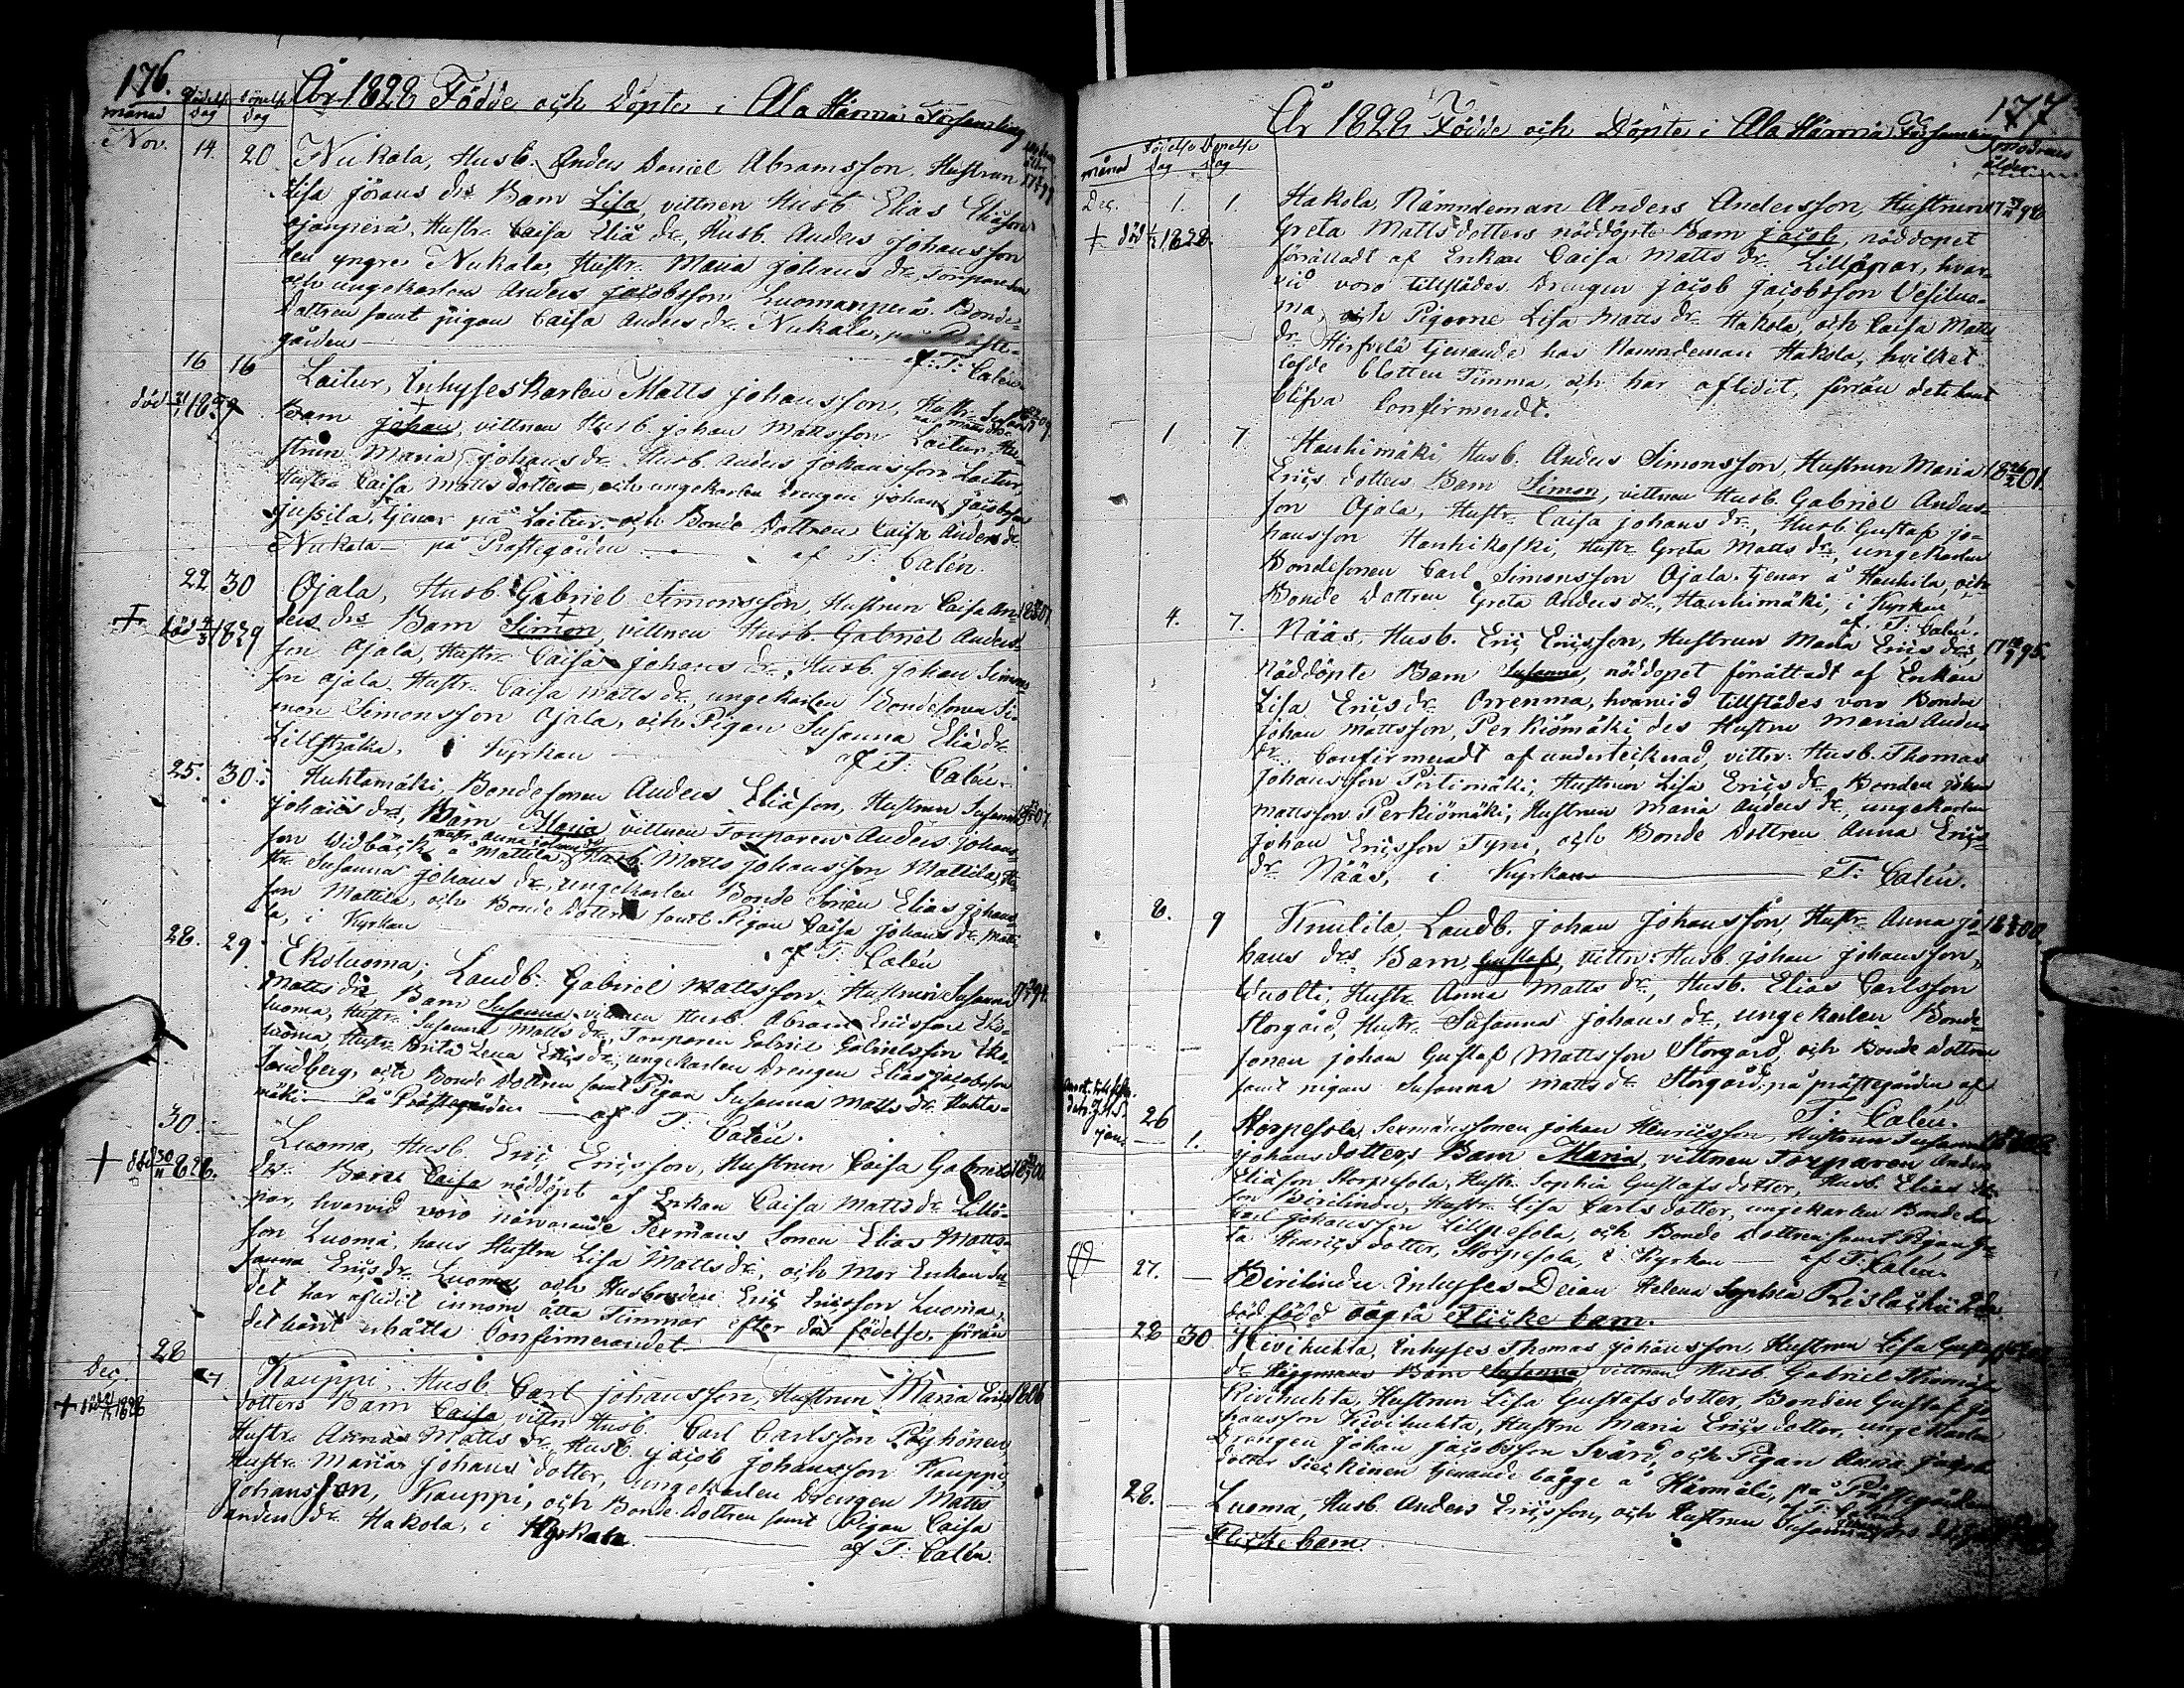 176.
År 1828 Födde och Döpte i Ala Härmä Församling
månad Födelse Dag Döpelse Dag
Nov. 14. 20 Nukala, Husb. Anders Daniel Abramsson, Hustrun
Lisa Jörans drs Barn Lisa, vittnen Husb. Elias Eliasson
Ojanperä, Hustr. Caisa Eliä dr, Husb. Anders Johansson
den yngre Nukala, Hustr. Maria Johans dr,
och ungekarlen Anders Jacobsson Luomanperä. Bonde
Dottren samt pigan Caisa Anders dr. Nukala, på Preste-
gården af: T: Calén
16 16 Laitur, Inhyseskarlen Matts Johansson, Hustr.
Barn Johan, vittnen Husb. Johan Mattsson Laitur, Hu-
strun Maria Johans dr. Husb. Anders Johansson Laitur,
Hustru Caisa Matts dotter, och ungekarlen Drengen Johan Jacobsson
Jussila, tjenar på Laitur, och Bonde Dottren Caisa Anders dr
Nukala på Prestegården af T: Calén.
22 30 Ojala, Husb. Gabriel Simonsson, Hustrun Caisa An-
ders drs Barn Simon, vittnen Husb. Gabriel Anders-
son Ojala, Hustr. Caisa Johans dr, Husb. Johan Simons
son Ojala, Hustr. Caisa Matts dr, ungekarlen Bondesonen Si-
mon Simonsson Ojala, och Pigan Susanna Eliä dr
i Kyrkan af T: Calén.
25. 30. Huhtamäki, Bondesonen Anders Eliäson, Hustrun Susanna
Johans drs, Barn Maria, vittnen Torparen Anders Johans-
son Widbäck å Mattila, Husb. Matts Johansson Mattila, Hu-
str. Susanna Johans dr, ungekarlen Bonde Sonen Elias Johans
son Mattila, och Bonde Dottren samt Pigan Caisa Johans dr Matti-
la, i Kyrkan af T: Calén
28. 29. Ekoluoma, Landb. Gabriel Mattsson, Hustrun Susanna
Matts drs Barn Susanna, vittnen Husb. Abram Ericsson Eko-
luoma, Hustr. Susanna Matts dr, Torparen Gabriel Gabrielsson Eko
luoma, Hustr. Brita Lena Erics dr, ungekarlen Drengen Elias Jacobsson
Sandberg, och Bonde Dottren samt Pigan Susanna Matts dr Huhta-
mäki på Prestegården af T: Calén.
30. Luoma, Husb. Eric Ericsson, Hustrun Caisa Gabriels
drs. Barn Caisa nöddöpt af Enkan Caisa Matts dr
hvarvid voro närvarande Sexmans Sonen Elias Matts-
son Luoma, hans Hustru Lisa Matts dr, och Mor Enkan Su-
sanna Erics dr Luoma, och Husbonden Eric Ericsson Luoma,
det har aflidit innom åtta Timmar efter dess födelse, förrän
det hant erhålla Confirmerandet
28
Dec. 7 Kauppi, Husb. Carl Johansson, Hustrun Maria Erics
dotters Barn Caisa, vittn. Husb. Carl Carlsson Pöyhönen,
Hustr. Anna Matts dr, Husb. Jacob Johansson Kauppi,
Hustr. Maria Johans dotter, ungekarlen Drengen Matts
Johansson, Kauppi, och Bonde Dottren samt Pigan Caisa
Anders dr. Hakola, i Kyrkan af T: Calén.
177
År 1828 Födde och Döpte i Ala Härmä Församling
månad Födelse Dag Döpelse Dag Modrens ålder
Dec. 1. 1. Hakola, Nämndeman Anders Andersson, Hustrun
Greta Matts dotters nöddöpte Barn Jacob, nöddopet
förrättadt af Enkan Caisa Matts dr. hvar-
vid voro tillstädes Drengen Jacob Jacobsson Vesiluo-
ma, och Pigorne Lisa Matts dr. Hakola, och Caisa Matts
dr. tjenande hos Nämndeman Hakola, hvilket
lefde blotten Timma, och har aflidit, förrän det hant
blifva Confirmeradt.
1 7. Hanhimäki, Husb. Anders Simonsson, Hustrun Maria
Erics dotters Barn Simon, vittnen Husb. Gabriel Anders-
son Ojala, Hustr. Caisa Johans dr, Husb. Gustaf Jo-
hansson Hanhikoski, Hustr. Greta Matts dr, ungekarlen
Bondesonen Carl Simonsson Ojala, tjenar å Hanhila, och
Bonde Dottren Greta Anders dr, Hanhimäki, i Kyrkan
af T: Calén.
4. 7. Nääs, Husb. Eric Ericsson, Hustrun Maria Erics drs,
Nöddöpte Barn Susanna, nöddopet förrättadt af Enkan
Lisa Erics dr. Orrenma, hvarvid tillstädes voro Bonden
Johan Mattsson, Perkiömäki, des Hustru Maria Anders
dr. Confirmeradt af undertecknad, vittn: Husb. Thomas
Johansson Pirtimäki, Hustrun Lisa Erics dr. Bonden Johan
Mattsson Perkiömäki, Hustrun Maria Anders dr, ungekarlen
Johan Ericsson Tyni, och Bonde Dottren Anna Erics
dr. Nääs, i Kyrkan T: Calén.
8. 9 Knuutila, Landb. Johan Johansson, Hustr. Anna Jo-
hans drs Barn, Gustaf, vittn: Husb. Johan Johansson,
Wuolti, Hustr. Anna Matts dr, Husb. Elias Carlsson
Storgård, Hustr. Susanna Johans dr, ungekarlen Bonde
sonen Johan Gustaf Mattsson Storgård, och Bonde Dottren
samt pigan Susanna Matts dr Storgård, på prästegården af
T: Calén.
26 1. Storpesola, Sexmanssonen Johan Henricsson, Hustrun Susanna
Johansdotters Barn Maria, vittnen Torparen Anders
Eliäson Storpesola, Hustr. Sophia Gustafs dotter, Husb. Elias
son Birilindu, Hustr. Lisa Carls dotter, ungekarlen Bonde Son
Carl Johansson Lillpesola, och Bonde Dottren samt Pigan
Henrics dotter, Storpesola, i Kyrkan af T: Calén.
27. Birilindu Inhyses Deian Helena Sophia
död född oägta Flicke barn.
28 30 Kivihuhta, Inhyses Thomas Johansson, Hustrun Lisa Gustafs
dr Häggmans Barn Susanna vittnen Husb. Gabriel Thomas
Kivihuhta, Hustrun Lisa Gustafs dotter, Bonden Gustaf Jo-
hansson Kivihuhta, Hustru Maria Erics dotter, ungekarlen
Drengen Johan Jacobsson Svärd, och Pigan Anna Jacobs
dotter tjenande bägge å Härmälä, på Prestegården
28. Luoma, Husb. Anders Ericsson, och Hustrun Susanna
Flicke barn.